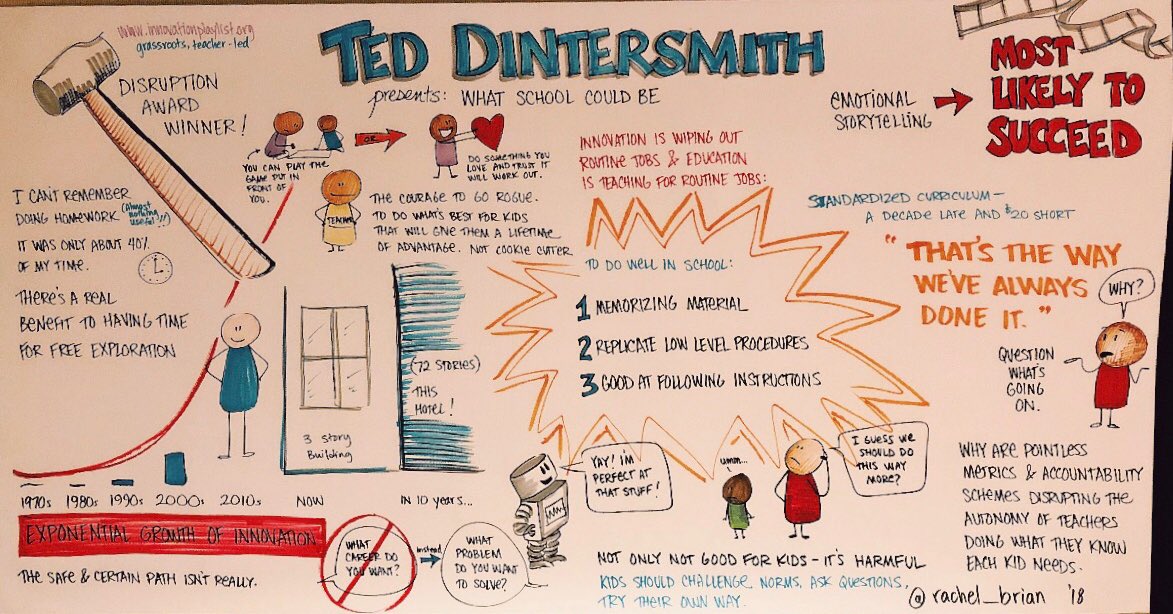 www.innovationplaylist.org
grassroots, teacher-led
DISRUPTION
AWARD
WINNER!
TED DINTERSMITH
presents: WHAT SCHOOL COULD BE
EMOTIONAL
STORYTELLING
MOST
LIKELY TO
SUCCEED
YOU CAN PLAY THE
GAME PUT IN
FRONT OF
YOU.
OR
DO SOMETHING YOU
LOVE AND TRUST IT
WILL WORK OUT.
INNOVATION IS WIPING OUT
ROUTINE JOBS & EDUCATION
IS TEACHING FOR ROUTINE JOBS:
I CAN'T REMEMBER
DOING HOMEWORK (Almost
nothing
useful!!)
IT WAS ONLY ABOUT 40%
OF MY TIME.
THERE'S A REAL
BENEFIT TO HAVING TIME
FOR FREE EXPLORATION
TEACHER
THE COURAGE TO GO ROGUE.
TO DO WHAT'S BEST FOR KIDS
THAT WILL GIVE THEM A LIFETIME
OF ADVANTAGE. NOT COOKIE CUTTER
STANDARDIZED CURRICULUM -
A DECADE LATE AND $20 SHORT
TO DO WELL IN SCHOOL:
1 MEMORIZING MATERIAL
2 REPLICATE LOW LEVEL PROCEDURES
3 GOOD AT FOLLOWING INSTRUCTIONS
"THAT'S THE WAY
WE'VE ALWAYS
DONE IT."
WHY?
QUESTION
WHAT'S
GOING
ON.
(72 STORIES)
THIS
HOTEL!
3 story
Building
1970s 1980s 1990s 2000s 2010s NOW IN 10 years...
EXPONENTIAL GROWTH OF INNOVATION
THE SAFE & CERTAIN PATH ISN'T REALLY.
WHAT
CAREER DO
YOU WANT?
instead
WHAT
PROBLEM
DO YOU WANT
TO SOLVE?
YAY! I'M
PERFECT AT
THAT STUFF!
umm...
I GUESS WE
SHOULD DO
THIS WAY
MORE?
NOT ONLY NOT GOOD FOR KIDS - IT'S HARMFUL
KIDS SHOULD CHALLENGE NORMS, ASK QUESTIONS,
TRY THEIR OWN WAY.
WHY ARE POINTLESS
METRICS & ACCOUNTABILITY
SCHEMES DISRUPTING THE
AUTONOMY OF TEACHERS
DOING WHAT THEY KNOW
EACH KID NEEDS.
@rachel_brian '18